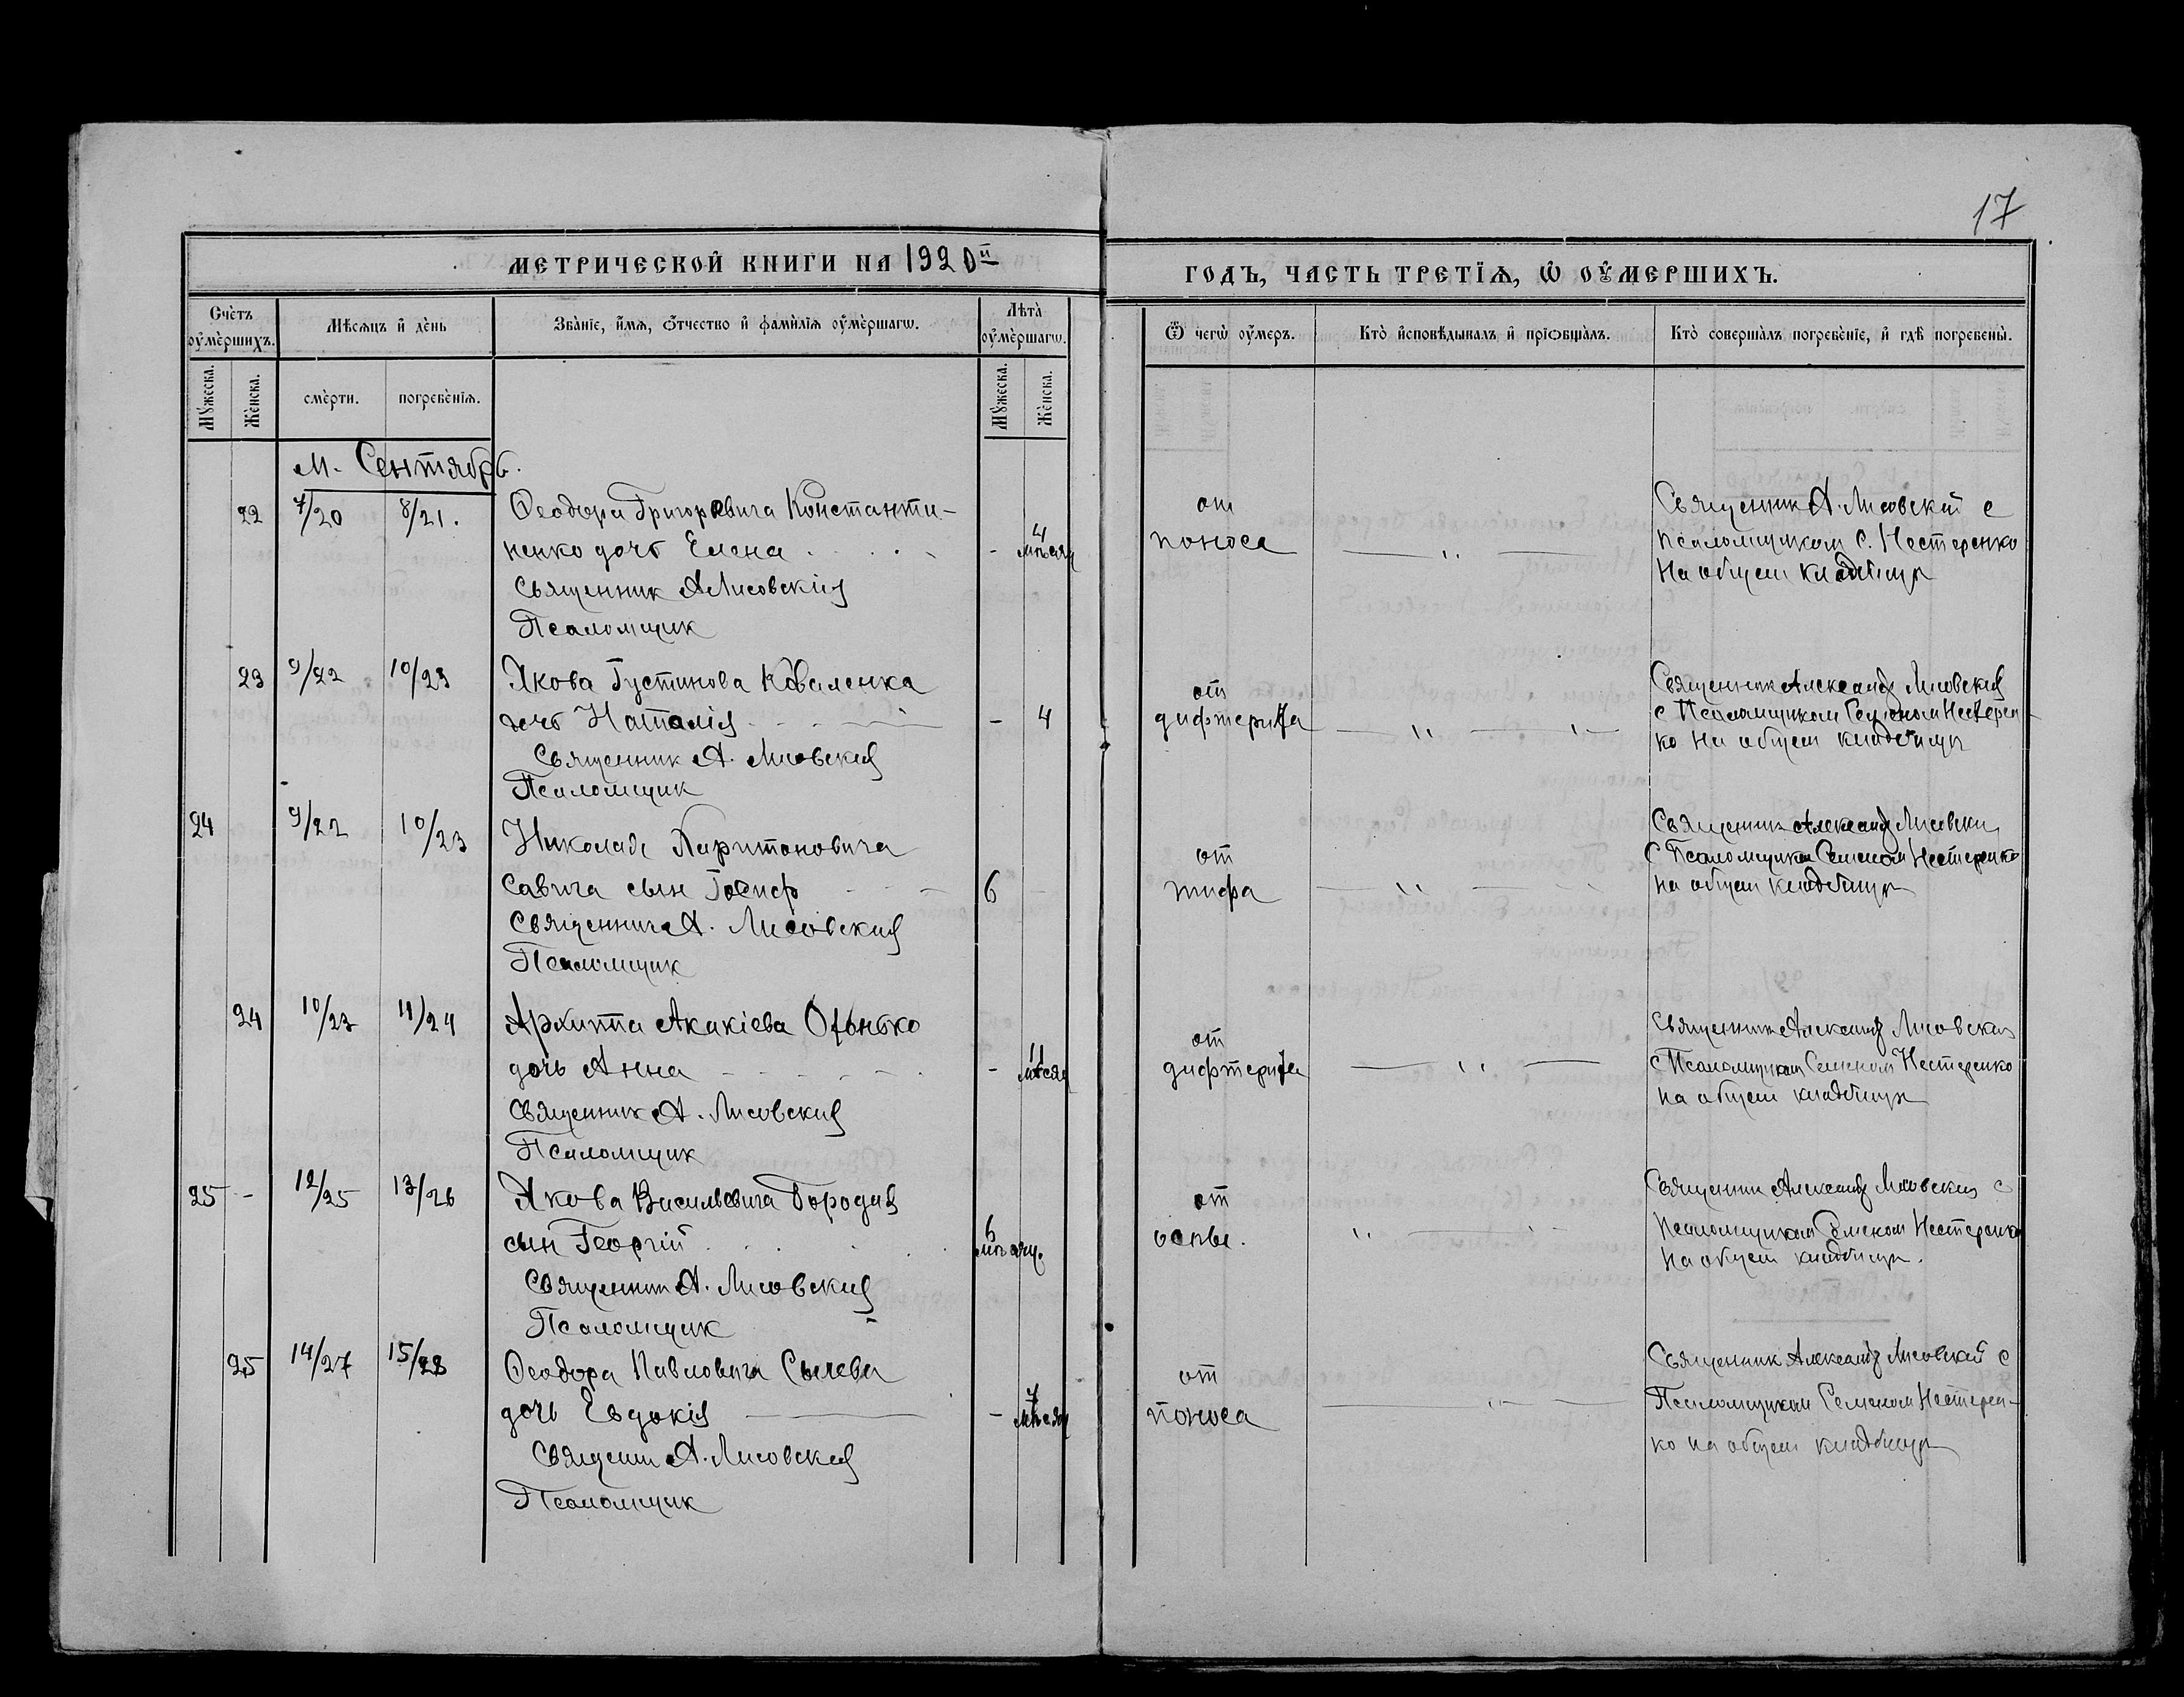 17
МЕТРИЧЕСКОЙ КНИГИ НА 1920й
ГОДЪ, ЧАСТЬ ТРЕТІѦ, Ѡ ОУМЕРШИХЪ.
Счетъ оумершихъ.
Мѣсѧцъ и день
Званіе, имѧ, отчество и фамиліѧ оумершагѡ.
Лѣта оумершагѡ.
Ѿ чегѡ оумеръ.
Кто исповѣдывалъ и пріобщалъ.
Кто совершалъ погребеніе, и гдѣ погребены.
Мужеска.
Женска.
смерти.
погребеніѧ.
Мужеска.
Женска.
М. Сентябрь.
22 7/20 8/21. Ѳеодора Григоревича Константи-
ненко дочь Елена - 4 мѣсяц
Священник А Лисовскій
Псаломщик
от
поноса
Священник А. Лисовский с
псаломщиком С. Нестеренко
на общем кладбище
23 9/22 10/23 Якова Густинова Коваленка
дочь Наталія - 4
Священник А. Лисовский
Псаломщик
от
дифтерита
Священник Александр Лисовский
с Псаломщиком Семеном Нестерен-
ко на общем кладбище
24 9/22 10/23 Николая Харитоновича
Савича сын Іосиф 6
Священник А. Лисовский
Псаломщик
от
тифа
Священник Александр Лисовский
с Псаломщиком Семеном Нестеренко
на общем кладбище
24 10/23 11/24 Архиппа Акакіева
дочь Анна - 11 мѣсяц
Священник А. Лисовский
Псаломщик
от
дифтерита
Священник Александр Лисовский
с Псаломщиком Семеном Нестеренко
на общем кладбище
25 - 12/25 13/26 Якова Васильевича Бородая
сын Георгій 6 мѣсяц.
Священник А. Лисовский
Псаломщик
от
оспы.
Священник Александр Лисовский с
псаломщиком Семеном Нестеренко
на общем кладбище.
25 14/27 15/28 Ѳеодора Павловича
дочь Евдокія - 7 мѣсяц
Священник А. Лисовский
Псаломщик
от
поноса
Священник Александр Лисовский с
Псаломщиком Семеном Нестерен-
ко на общем кладбище